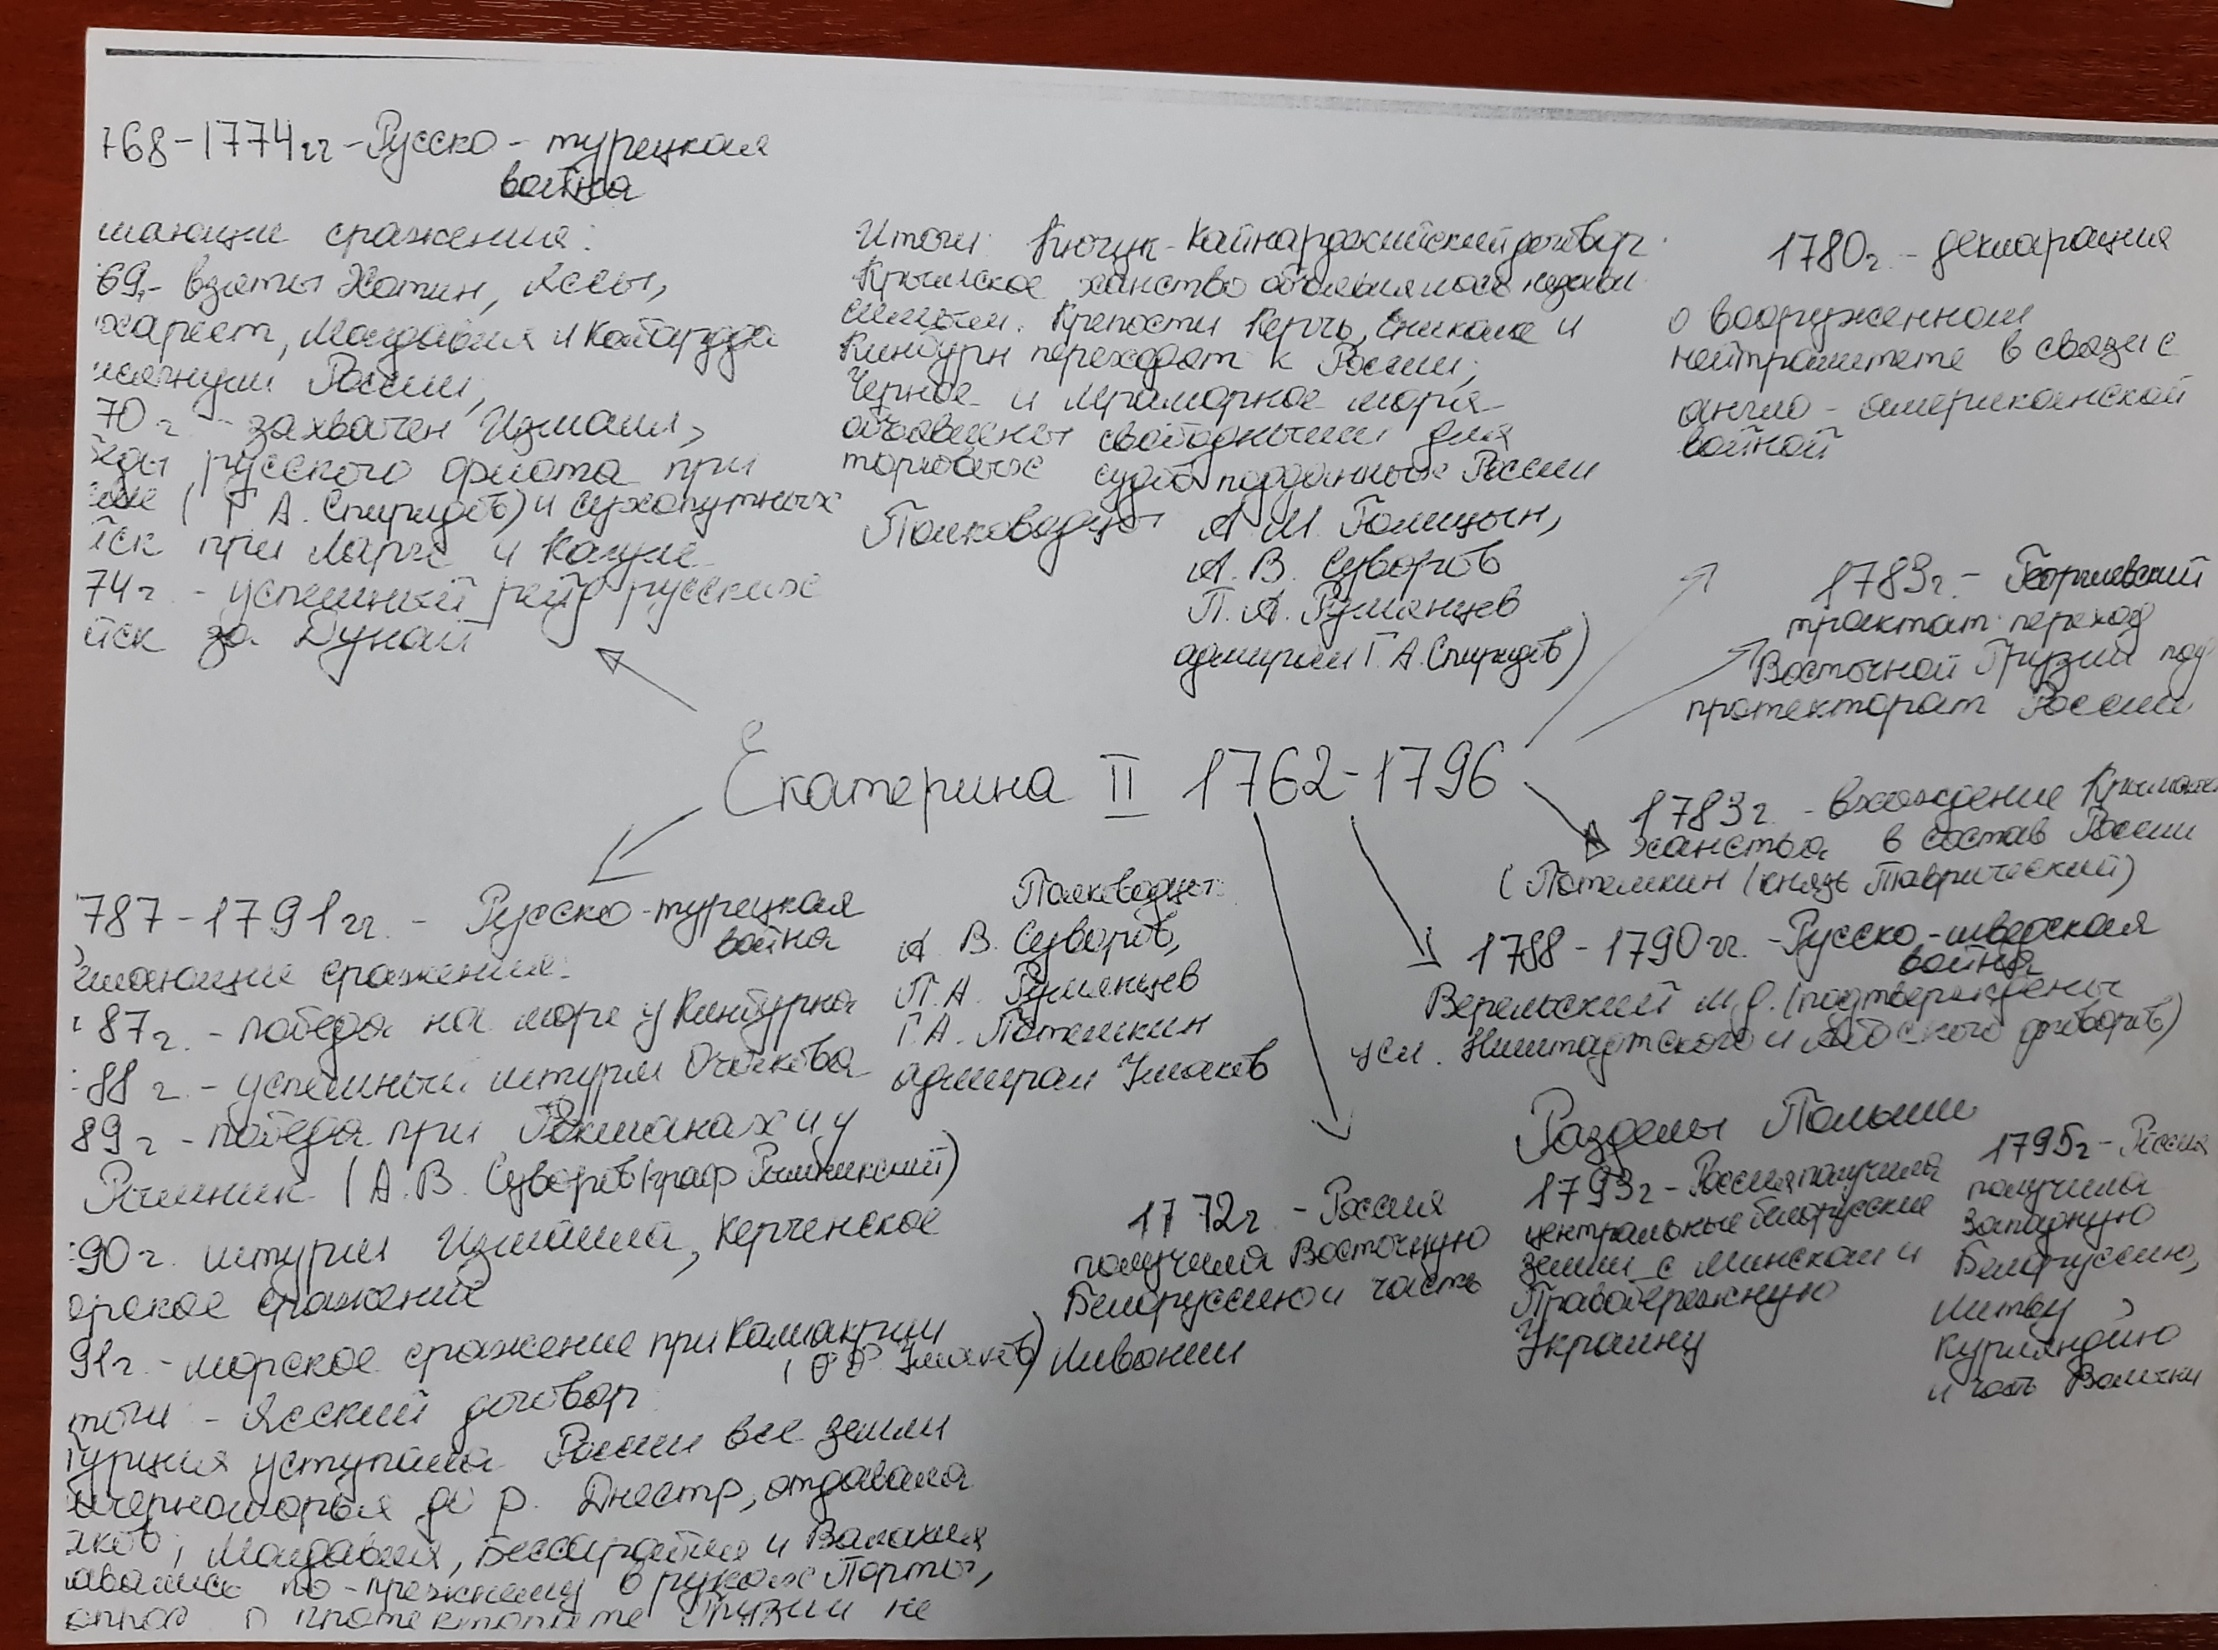 768-1774гг - Русско - турецкая
война
шающие сражения:
69г- взяты Хотин, Яссы,
харест, Молдавия и Кабарда
исягнули России,
70г - захвачен Измаил,
еды русского флота при
ме (Г. А. Спиридов) и сухопутных
йск при Ларге и Кагуле
74г - успешный рейд русских
йск за Дунай
Итоги: Кючук-Кайнарджийский договор
Крымское ханство объявлялось незави
симым. Крепости Керчь, Еникале и
Кинбурн переходят к России;
Черное и Мраморное моря
объявлены свободными для
торговых судов подданных России
Полководцы А. М. Голицын,
А. В. Суворов
П. А. Румянцев
адмирал Г. А. Спиридов)
1780г. - декларация
о вооруженном
нейтралитете в связи с
англо - американской
войной
1783г. - Георгиевский
трактат переход
Восточной Грузии под
протекторат России
Екатерина II 1762-1796
1783г. - вхождение Крымск
ханства в состав России
(Потемкин (князь Таврический)
1788 - 1790гг. - Русско-шведская
война
Верельский м.д. (подтверждены
усл. Ништадтского и Абоского договоров)
787-1791гг. - Русско-турецкая
война
ешающие сражения:
87г. - победа на море у Кинбурна
88г. - успешный штурм Очакова
89г - победа при Фокшанах и у
Рымник (А. В. Суворов (граф Рымникский)
90г. штурм Измаила, Керченское
орское сражение
91г. - морское сражение при Калиакрии
(Ф. Ф. Ушаков)
тоги - Ясский договор
Турция уступала России все земли
ичерноморья до р. Днестр, отдавала
яков; Молдавия, Бессарабия и Валахия
авались по-прежнему в руках Порты,
опрос о протекторате Грузии не
Полководцы:
А. В. Суворов,
П. А. Румянцев
Г. А. Потемкин
адмирал Ушаков
Разделы Польши
1772г - Россия
получила Восточную
Белоруссию и часть
Ливонии
1793г - Россия получила
центральные белорусские
земли с Минском и
Правобережную
Украину
1795г - Россия
получила
Западную
Белоруссию,
Литву,
Курляндию
и часть Волыни